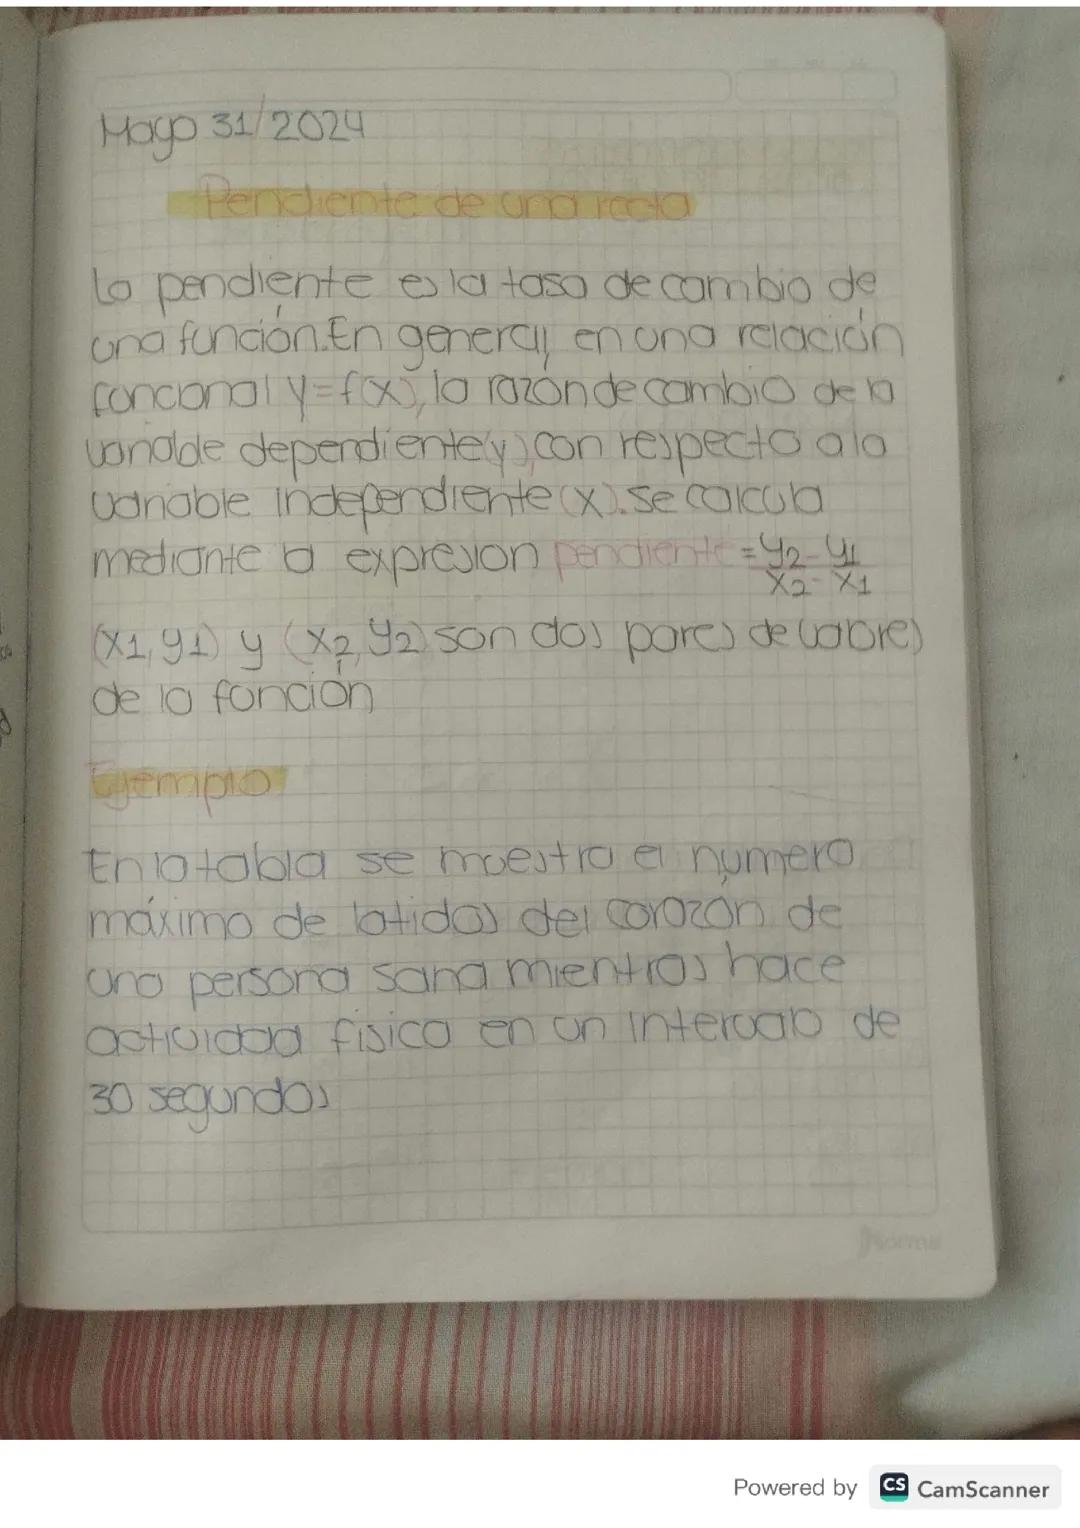 Mayo 31/2024
Pendiente de una recta
La pendiente es la tasa de cambio de
una función. En general, en una relación
funcional y=f(x), la razón de cambio de la
variable dependiente(y), con respecto a la
variable independiente (x). se calcula
mediante la expresion pendiente = y2 - y1
x2 - x1
(x1, y1) y (x2, y2) son dos pares de valores
de la función
Ejemplo
En la tabla se muestra el numero
máximo de latidos del corazón de
una persona sana mientras hace
actividad fisica en un intervalo de
30 segundos
Norma
Powered by CS CamScanner